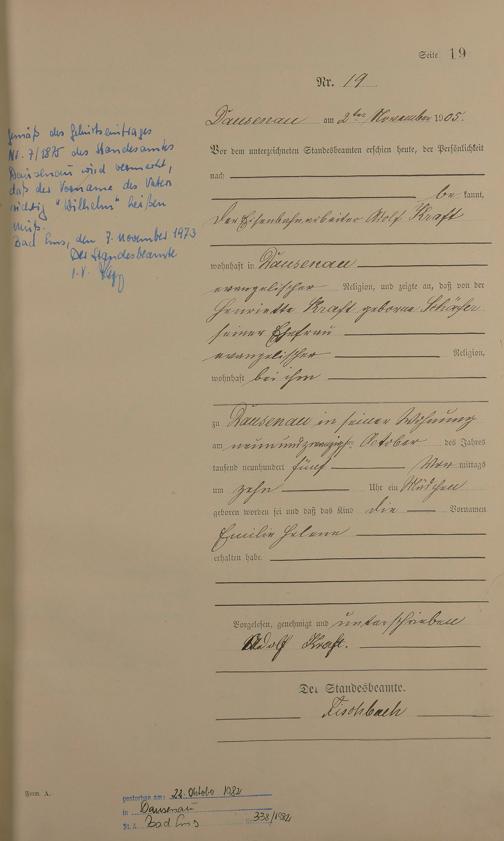 Seite 19
Nr. 19
Gemäß des Geburtseintrages
Nr. 7/1875 des Standesamtes
Dausenau wird vermerkt,
daß der Vorname des Vaters
richtig "Wilhelm" heißen
muß.
Bad Ems, den 7. November 1973
Der Standesbeamte
I.V.
Dausenau am 2ten November 1905.
Vor dem unterzeichneten Standesbeamten erschien heute, der Persönlichkeit
nach
be kannt,
der Eisenbahnarbeiter Adolf Kraft
wohnhaft in Dausenau
evangelischer Religion, und zeigte an, daß von der
Henriette Kraft geborne Schäfer
seiner Ehefrau
evangelischer Religion,
wohnhaft bei ihm
zu Dausenau in seiner Wohnung
am neunundzwanzigsten October des Jahres
tausend neunhundert fünf Vor mittags
um zehn Uhr ein Mädchen
geboren worden sei und daß das Kind die Vornamen
Emilie Helene
erhalten habe.
Vorgelesen, genehmigt und unterschrieben
Adolf Kraft.
Der Standesbeamte.
Fischbach
Form. A.
gestorben am: 22. Oktober 1982
in Dausenau
St. A. Bad Ems Nr. 338/1982